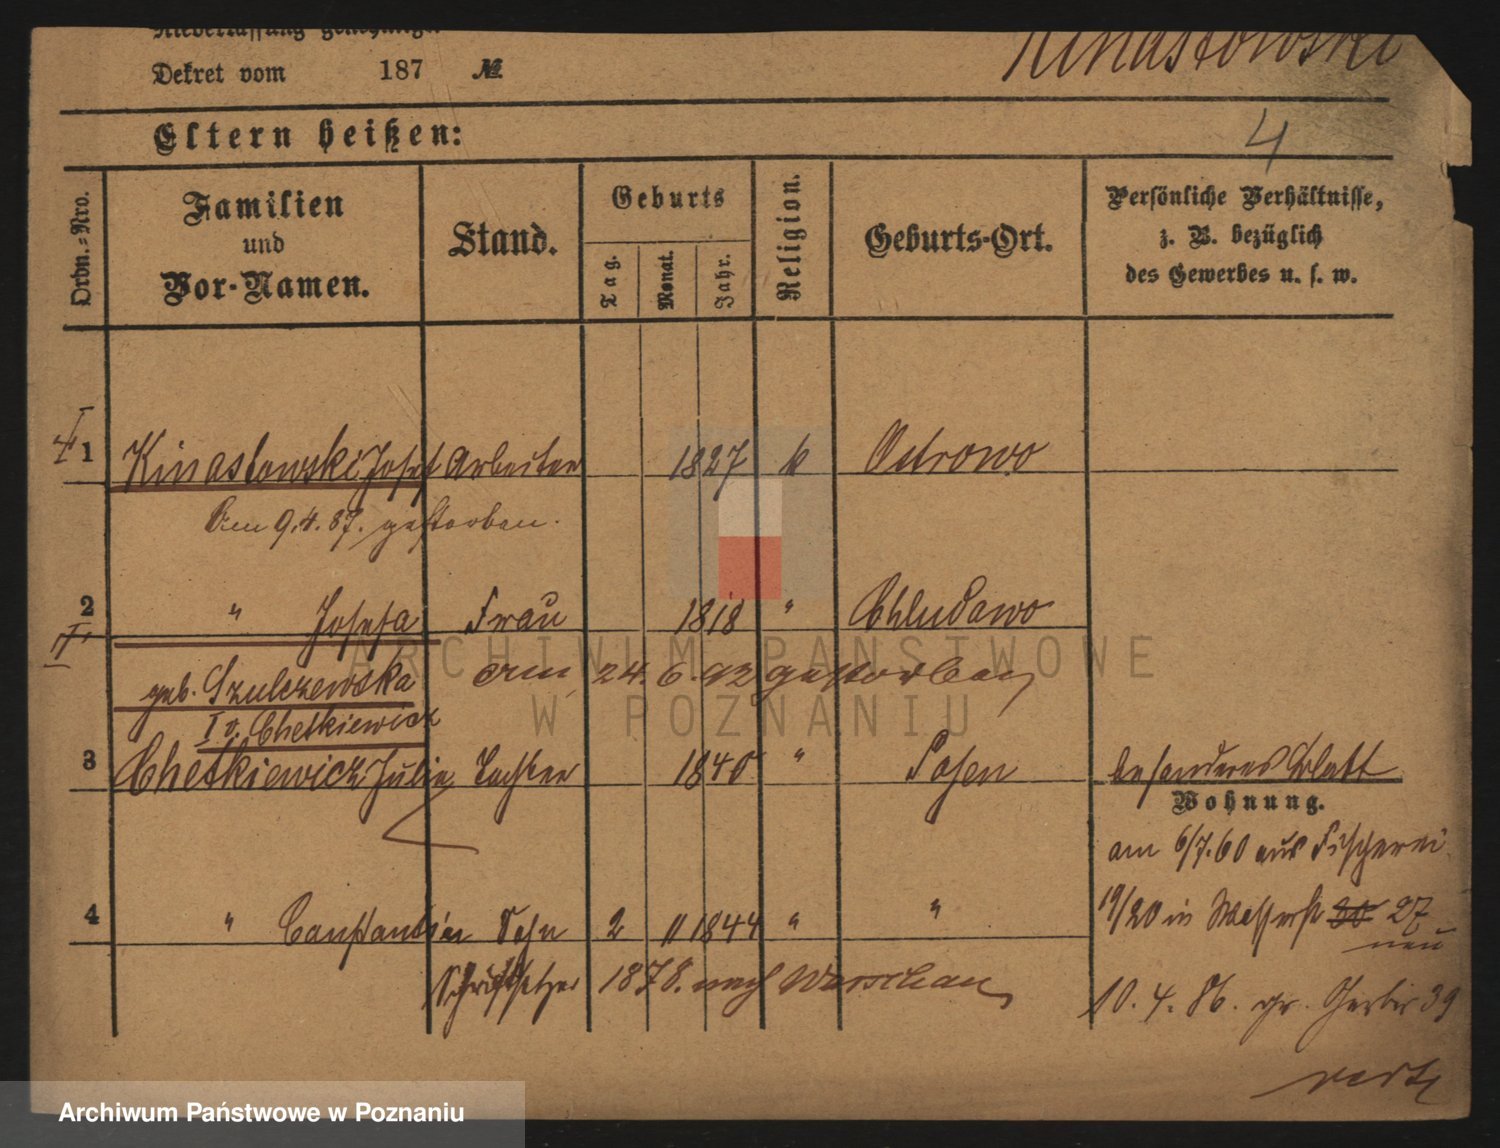 Niederlassung genehmigt
Dekret vom 187 № Kinastowski
Eltern heißen: 4
Ordn.=Nro.
Familien
und
Vor-Namen.
Stand.
Geburts
Tag.
Monat.
Jahr.
Religion.
Geburts-Ort.
Persönliche Verhältnisse,
z. B. bezüglich
des Gewerbes u. s. w.
1 Kinastowski Josef Arbeiter 1827 k Ostrowo
Am 9.4.87. gestorben.
2 " Josefa Frau 1818 " Chludowo
geb. Szulczewska am 24.6.92 gestorben
I v. Chetkiewicz
3 Chetkiewicz Julie Tochter 1840 " Posen besonderes Blatt
Wohnung.
am 6/7.60 aus Fischerei
4 " Constantin Sohn 2 11 1844 " " 19/20 in Wasserstr 30 27
neu
Schriftsetzer 1878. nach Warschau
10.4.86. gr. Gerber 39
ARCHIWUM PAŃSTWOWE
W POZNANIU
Archiwum Państwowe w Poznaniu